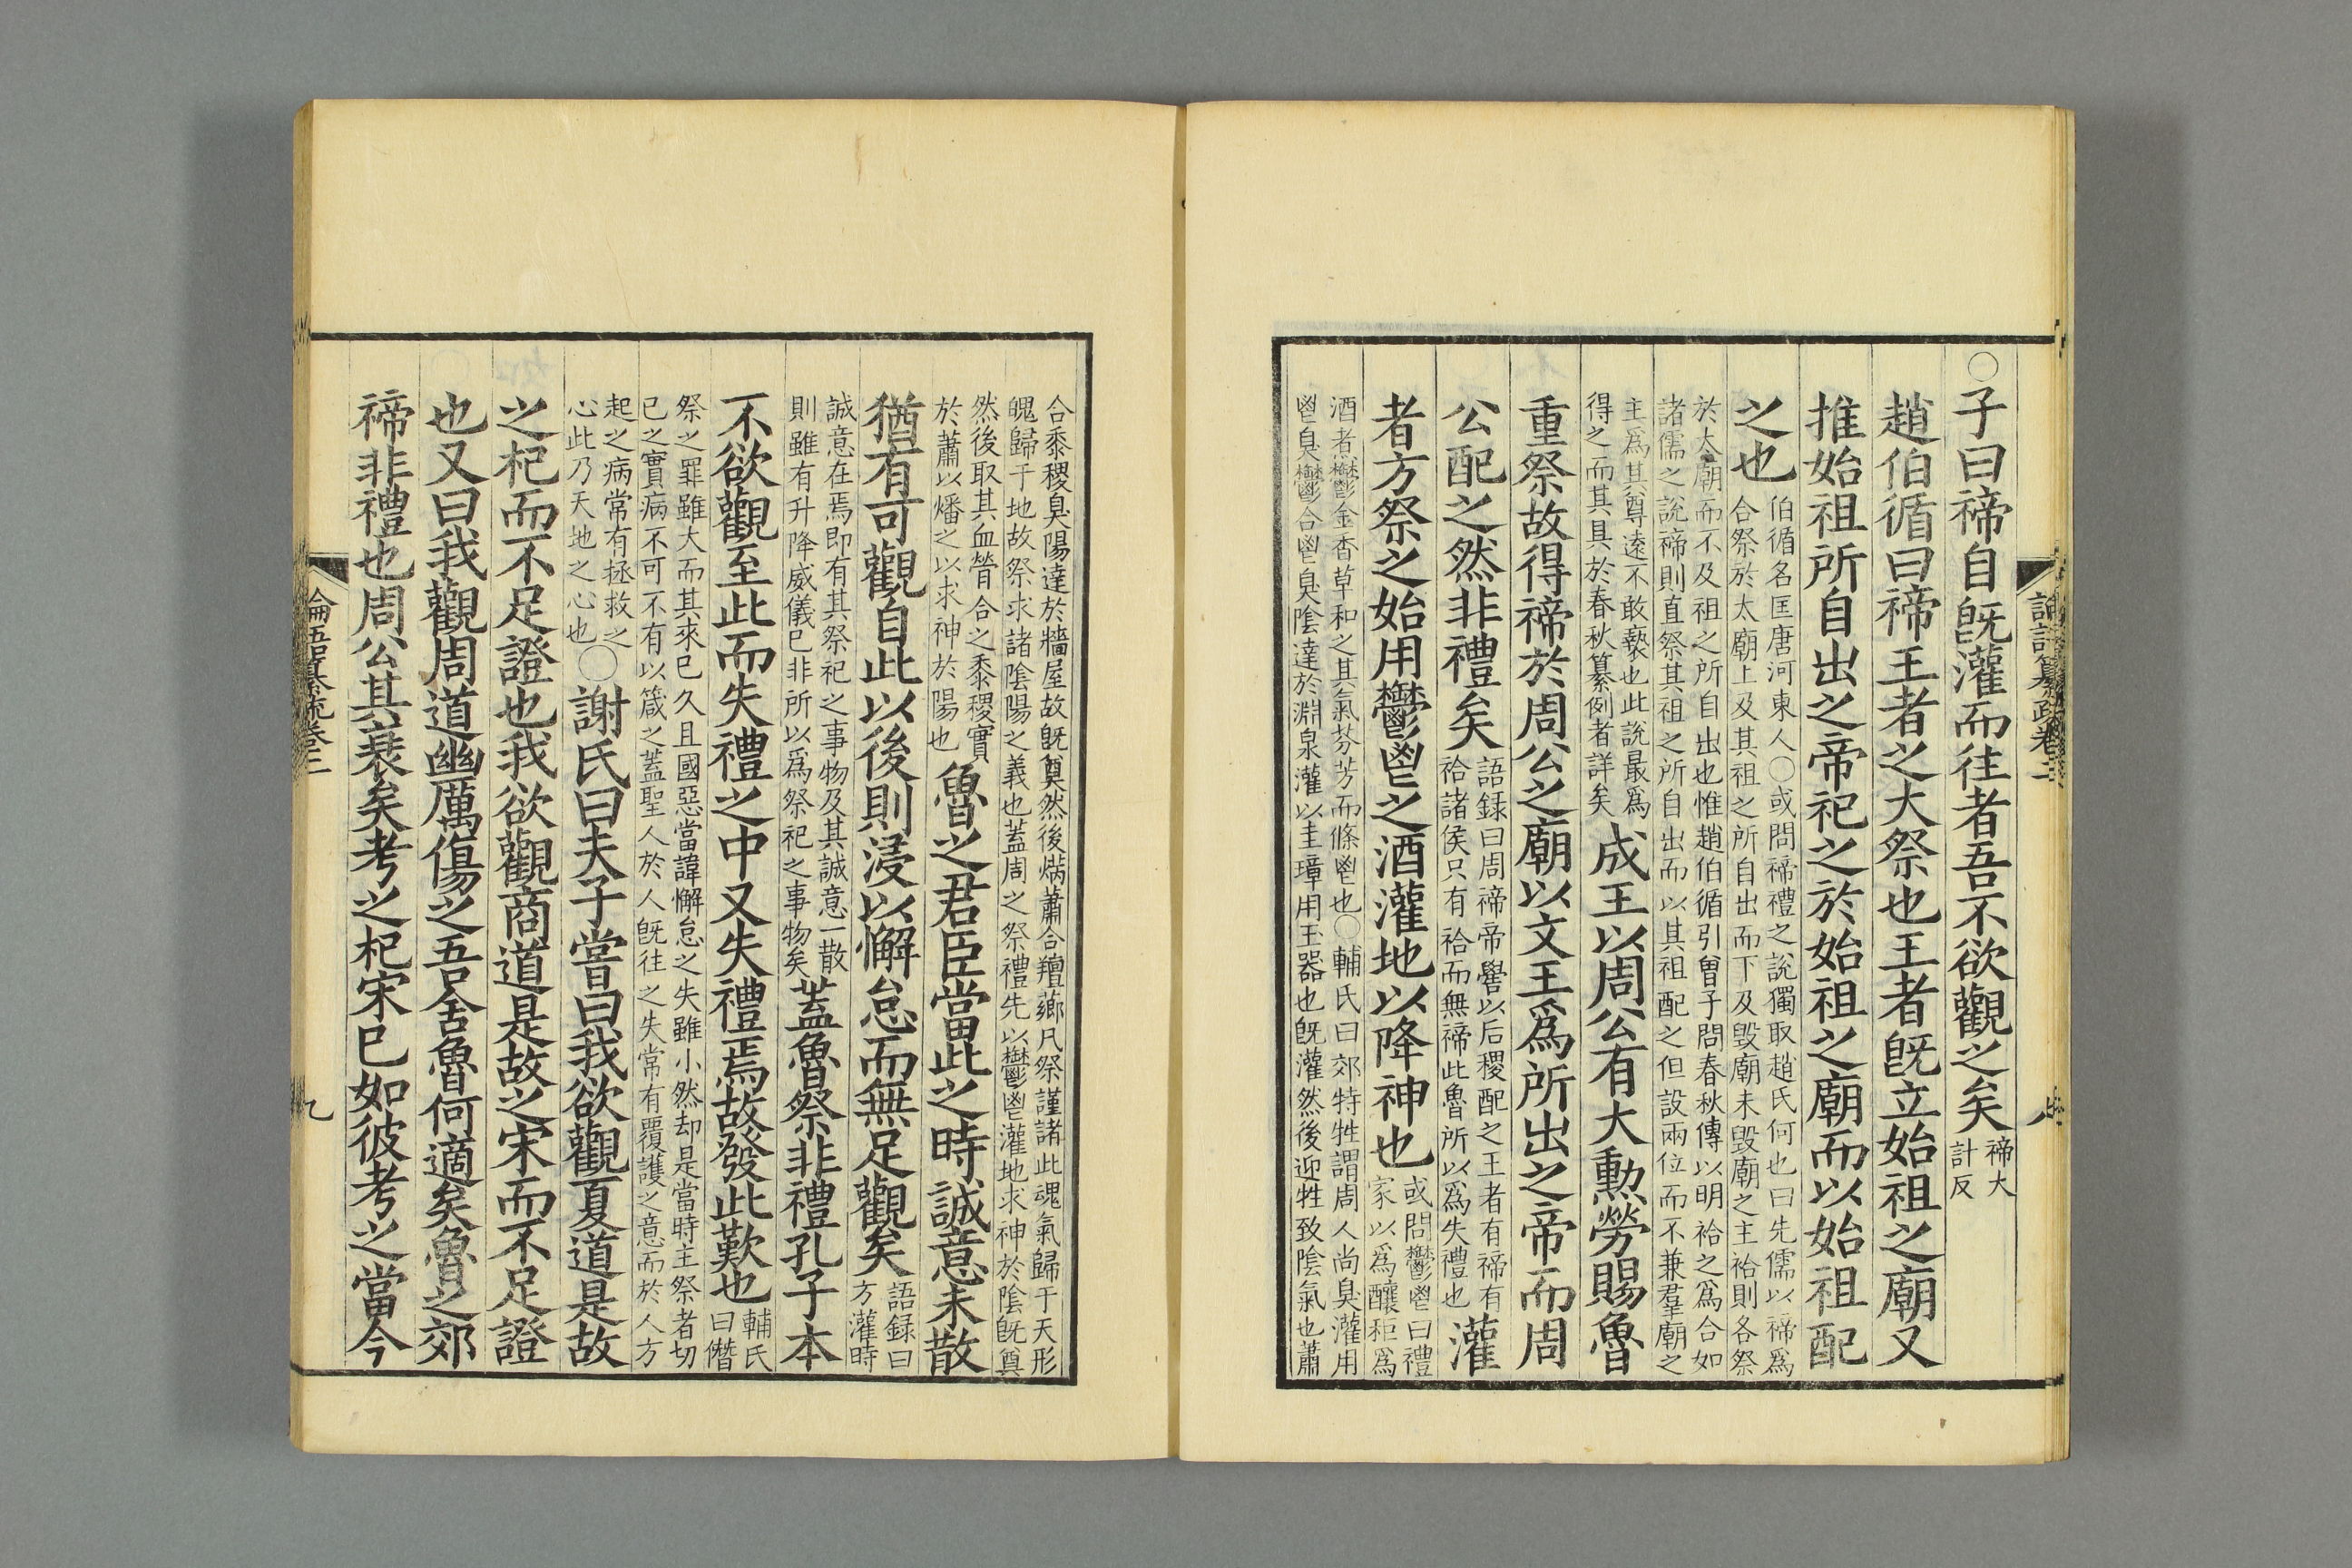 論語纂疏卷二
八
○子曰禘自旣灌而往者吾不欲觀之矣禘大
計反
趙伯循曰禘王者之大祭也王者旣立始祖之廟又
推始祖所自出之帝祀之於始祖之廟而以始祖配
之也伯循名匡唐河東人○或問禘禮之說獨取趙氏何也曰先儒以禘爲
合祭於太廟上及其祖之所自出而下及毀廟未毀廟之主祫則各祭
於太廟而不及祖之所自出也惟趙伯循引曾子問春秋傳以明祫之爲合如
諸儒之說禘則直祭其祖之所自出而以其祖配之但設兩位而不兼羣廟之
主爲其尊遠不敢褻也此說最爲
得之而其具於春秋纂例者詳矣成王以周公有大勳勞賜魯
重祭故得禘於周公之廟以文王爲所出之帝而周
公配之然非禮矣語録曰周禘帝嚳以后稷配之王者有禘有
祫諸侯只有祫而無禘此魯所以爲失禮也灌
者方祭之始用鬱鬯之酒灌地以降神也或問鬱鬯曰禮
家以爲釀秬爲
酒煮鬱金香草和之其氣芬芳而條鬯也○輔氏曰郊特牲謂周人尚臭灌用
鬯臭鬱合鬯臭陰達於淵泉灌以圭璋用玉器也旣灌然後迎牲致陰氣也蕭
合黍稷臭陽達於牆屋故旣奠然後焫蕭合羶薌凡祭謹諸此魂氣歸于天形
魄歸于地故祭求諸陰陽之義也蓋周之祭禮先以鬱鬯灌地求神於陰旣奠
然後取其血膋合之黍稷實
於蕭以燔之以求神於陽也魯之君臣當此之時誠意未散
猶有可觀自此以後則浸以懈怠而無足觀矣語録曰
方灌時
誠意在焉即有其祭祀之事物及其誠意一散
則雖有升降威儀已非所以爲祭祀之事物矣蓋魯祭非禮孔子本
不欲觀至此而失禮之中又失禮焉故發此歎也輔氏
曰僭
祭之罪雖大而其來已久且國惡當諱懈怠之失雖小然却是當時主祭者切
已之實病不可不有以箴之蓋聖人於人旣往之失常有覆護之意而於人方
起之病常有拯救之
心此乃天地之心也○謝氏曰夫子嘗曰我欲觀夏道是故
之杞而不足證也我欲觀商道是故之宋而不足證
也又曰我觀周道幽厲傷之吾舍魯何適矣魯之郊
禘非禮也周公其衰矣考之杞宋已如彼考之當今
論語纂疏卷二
九